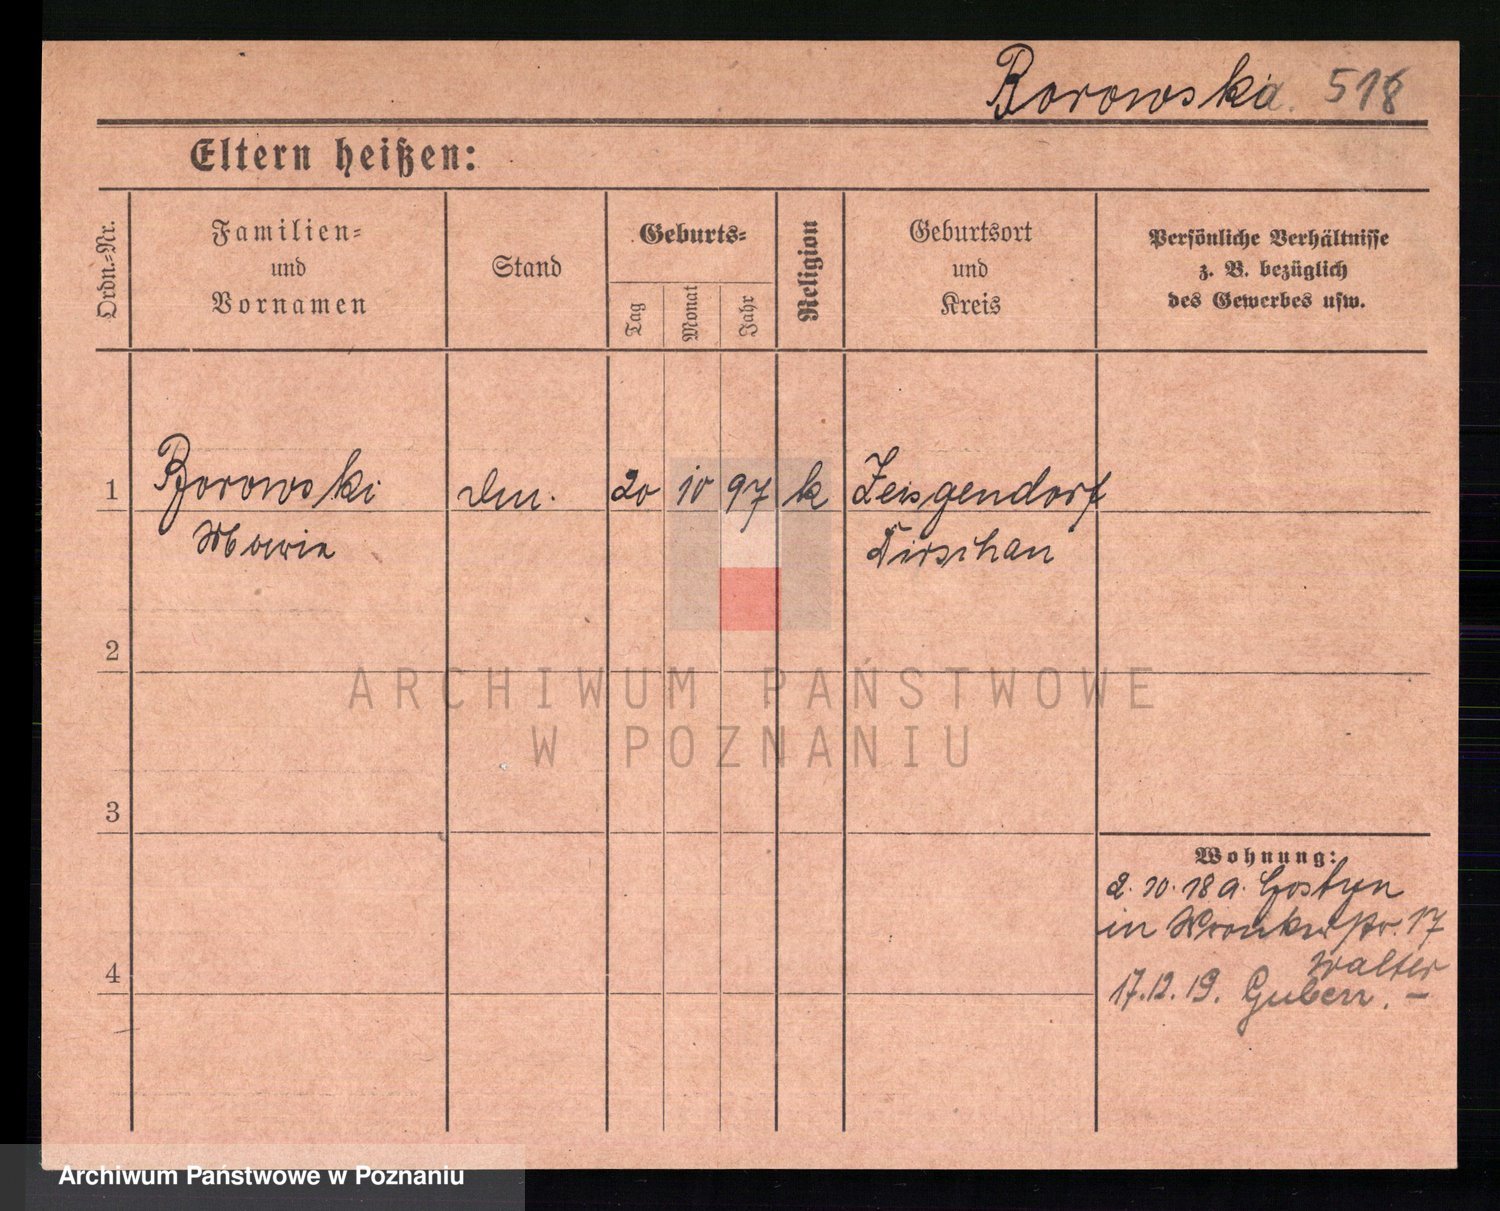 Borowska. 518
Eltern heißen:
Ordn.-Nr.
Familien-
und
Vornamen
Stand
Geburts-
Tag
Monat
Jahr
Religion
Geburtsort
und
Kreis
Persönliche Verhältnisse
z. B. bezüglich
des Gewerbes usw.
1 Borowski 20 10 97 k Zeisgendorf
Marie Dirschau
2
ARCHIWUM PAŃSTWOWE
W POZNANIU
3
Wohnung:
2. 10. 18 a. Gostyn
in Wronkerstr. 17
Walter
4
17.12.19. Guben. –
Archiwum Państwowe w Poznaniu